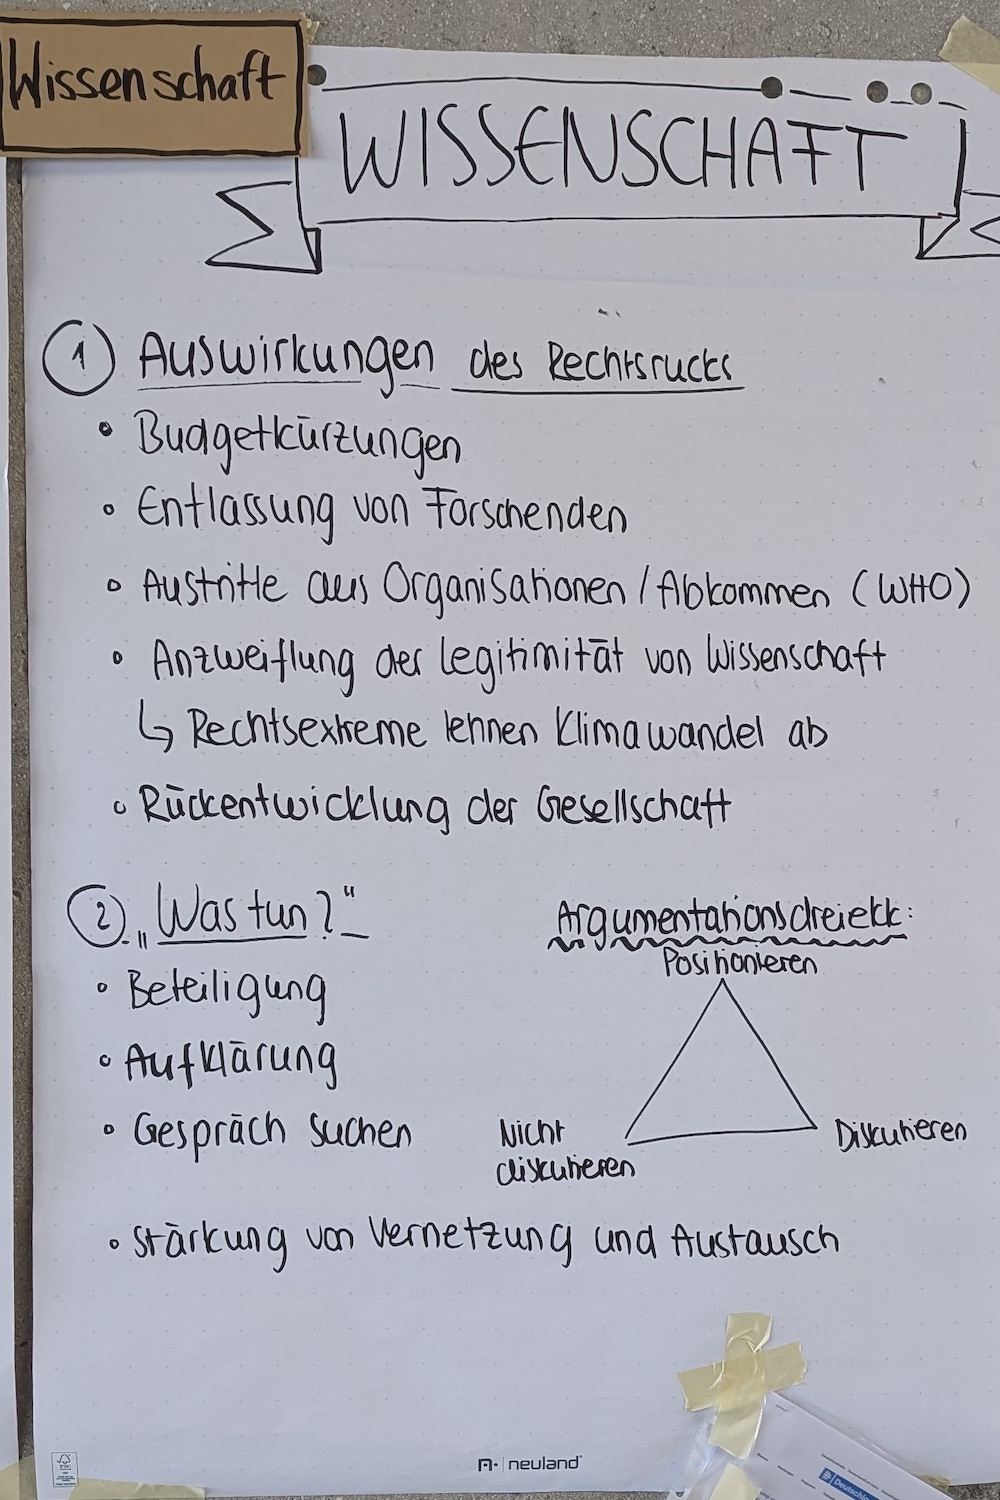 Wissenschaft
WISSENSCHAFT
1 Auswirkungen des Rechtsrucks
• Budgetkürzungen
• Entlassung von Forschenden
• Austritte aus Organisationen / Abkommen (WHO)
• Anzweiflung der Legitimität von Wissenschaft
↳ Rechtsextreme lehnen Klimawandel ab
• Rückentwicklung der Gesellschaft
2. „Was tun?"
• Beteiligung
• Aufklärung
• Gespräch suchen
• Stärkung von Vernetzung und Austausch
Argumentationsdreieck:
Positionieren
Nicht
diskutieren
Diskutieren
neuland